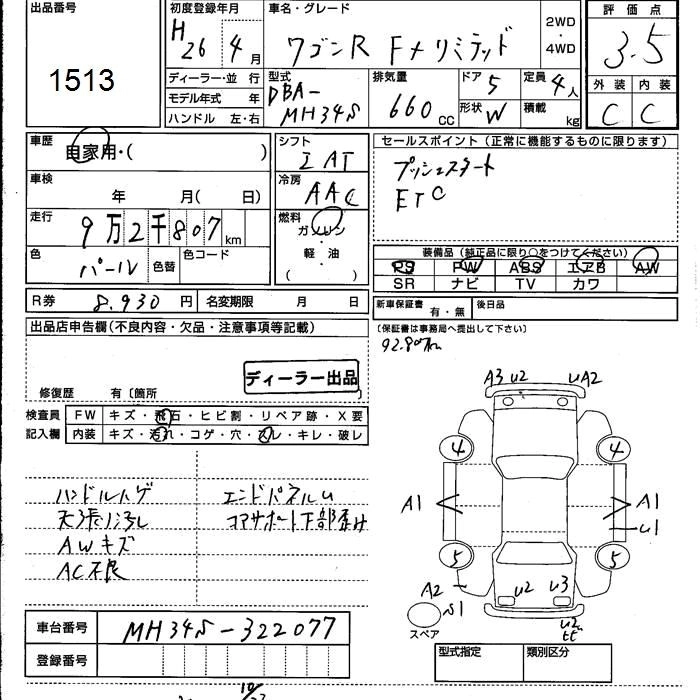 出品番号
1513
初度登録年月
H 26 4 月
車名・グレード
ワゴンR FXリミテッド
2WD
・
4WD
評価点
3.5
外装 内装
C C
ディーラー・並 行
モデル年式 年
ハンドル 左・右
型式
DBA-
MH34S
排気量
660 cc
ドア 5
形状 W
定員 4人
積載 kg
車歴
自家用・( )
車検
年 月( 日)
走行
9万2千807 km
色
パール
色替
色コード
シフト
I AT
冷房
AAC
燃料
ガソリン
・
軽油
( )
セールスポイント(正常に機能するものに限ります)
プッシュスタート
ETC
装備品(純正品に限り○をつけてください)
PS PW ABS エアB AW
SR ナビ TV カワ
R券 8.930 円
名変期限 月 日
新車保証書 有・無
後日品
(保証書は事務局へ提出して下さい)
92.807km
出品店申告欄(不良内容・欠品・注意事項等記載)
ディーラー出品
修復歴 有〔箇所 〕
検査員
記入欄
FW キズ・飛石・ヒビ割・リペア跡・X要
内装 キズ・汚れ・コゲ・穴・スレ・キレ・破レ
ハンドルハゲ
天張汚れ
AWキズ
AC不良
エンドパネルU
コアサポート下部歪み
A3 U2 UA2
4 4
A1 A1
U1
5 5
A2 U2 U3
S1
U2
スペア
車台番号 MH34S-322077
登録番号
型式指定 類別区分